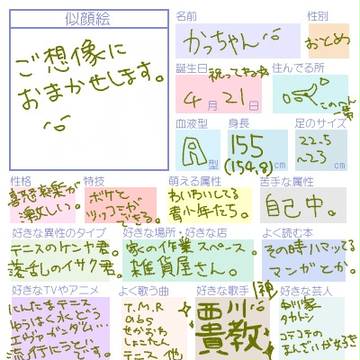 似顔絵
ご想像に
おまかせします。
名前
かっちゃん
性別
おとめ
誕生日
祝ってやって
4月21日
住んでる所
血液型
A型
身長
155
(154.8)cm
足のサイズ
22.5
〜23cm
性格
喜怒哀楽が
激しい。
特技
ボケと
ツッコミが
できる。
萌える属性
わいわいしてる
青少年たち。
苦手な属性
自己中。
好きな異性のタイプ
テニスのケンヤ君。
落乱のイサク君。
好きな場所・好きな店
家の作業スペース。
雑貨屋さん。
よく読む本
その時ハマッてる
マンガとか。
好きなTVやアニメ
にんたまテニス
エヴァガンダム…
流行にうといです。
よく歌う曲
T.M.R
しょこたん
テニス 他
好きな歌手
西川
貴教
好きな芸人
タカトシ